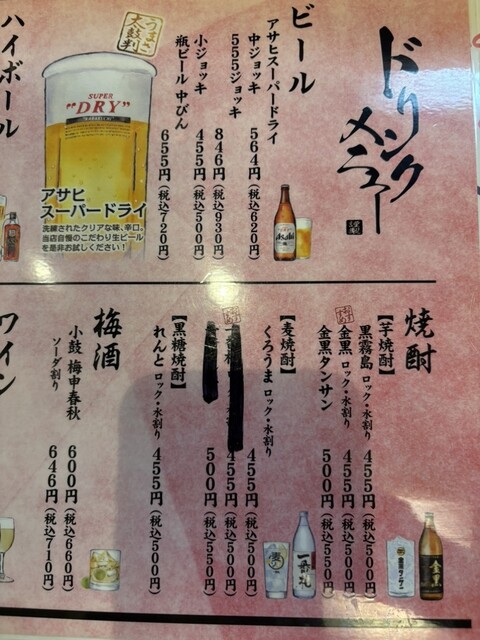 ドリンク
メニュー
ビール
アサヒスーパードライ
中ジョッキ 564円(税込620円)
555ジョッキ 846円(税込930円)
小ジョッキ 455円(税込500円)
瓶ビール 中びん 655円(税込720円)
うまさ
太鼓判
SUPER
"DRY"
アサヒ
スーパードライ
洗練されたクリアな味、辛口。
当店自慢のこだわり生ビール
を是非お試しください!
ハイボール
焼酎
【芋焼酎】
黒霧島 ロック・水割り 455円(税込500円)
金黒 ロック・水割り 455円(税込500円)
金黒タンサン 500円(税込550円)
【麦焼酎】
くろうま ロック・水割り 455円(税込500円)
455円(税込500円)
500円(税込550円)
【黒糖焼酎】
れんと ロック・水割り 455円(税込500円)
梅酒
小鼓 梅申春秋 600円(税込660円)
ソーダ割り 646円(税込710円)
ワイン
一番札
金黒